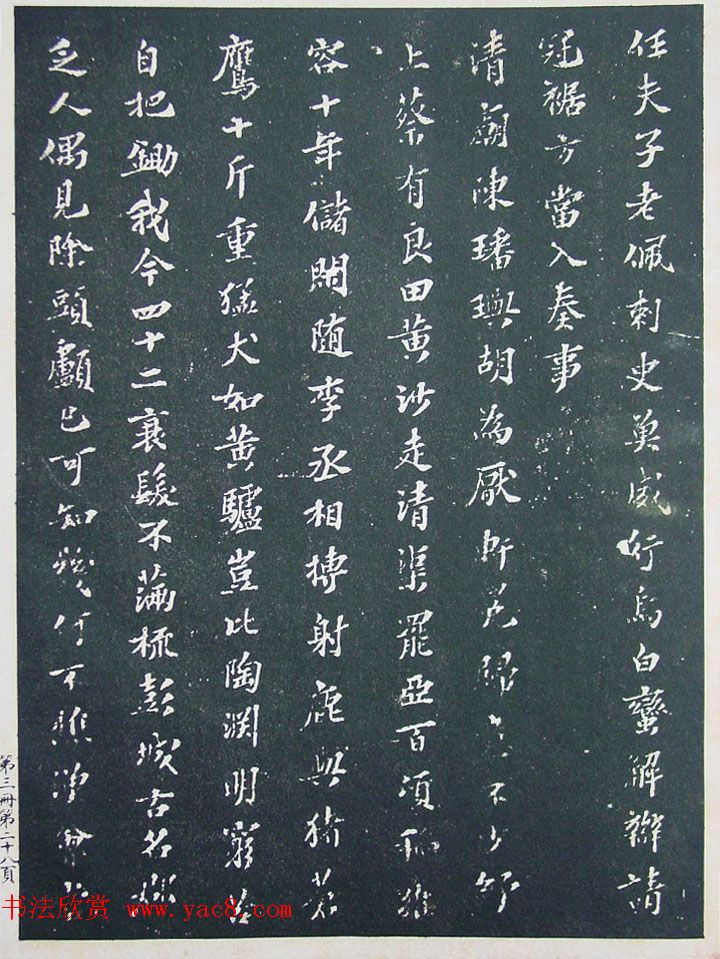 任夫子老佩刺史魚威行烏白蠻解辮請
冠裾方當入奏事
清廟陳璠璵胡為厭軒冕歸意不少紓
上蔡有良田黃沙走清渠罷亞百頃稻雍
容十年儲閑随李丞相搏射鹿與猪蒼
鷹十斤重猛犬如黃驢豈比陶淵明窮苦
自把鋤我今四十二衰髮不滿梳彭城古名郡
乏人偶見除頭顱已可知幾何不樵漁
第三冊第二十八頁
书法欣赏 www.yac8.com